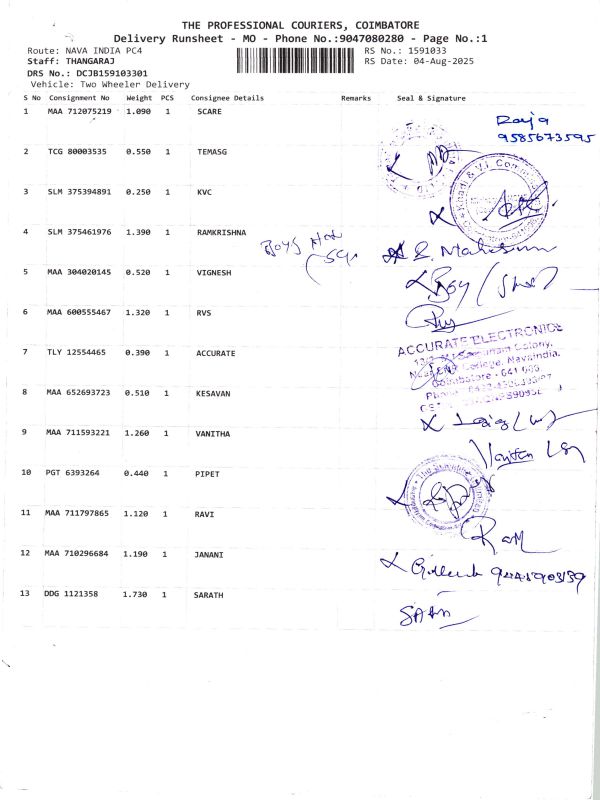 THE PROFESSIONAL COURIERS, COIMBATORE
Delivery Runsheet - MO - Phone No.:9047080280 - Page No.:1
Route: NAVA INDIA PC4 RS No.: 1591033
Staff: THANGARAJ RS Date: 04-Aug-2025
DRS No.: DCJB159103301
Vehicle: Two Wheeler Delivery
S No Consignment No Weight PCS Consignee Details Remarks Seal & Signature
1 MAA 712075219 1.090 1 SCARE
9585673595
2 TCG 80003535 0.550 1 TEMASG
3 SLM 375394891 0.250 1 KVC
4 SLM 375461976 1.390 1 RAMKRISHNA
Boys
5 MAA 304020145 0.520 1 VIGNESH
Boy
6 MAA 600555467 1.320 1 RVS
7 TLY 12554465 0.390 1 ACCURATE
ACCURATE ELECTRONICS
Colony,
College, Navaindia,
Coimbatore - 641
Phone
8 MAA 652693723 0.510 1 KESAVAN
9 MAA 711593221 1.260 1 VANITHA
10 PGT 6393264 0.440 1 PIPET
11 MAA 711797865 1.120 1 RAVI
12 MAA 710296684 1.190 1 JANANI
13 DDG 1121358 1.730 1 SARATH